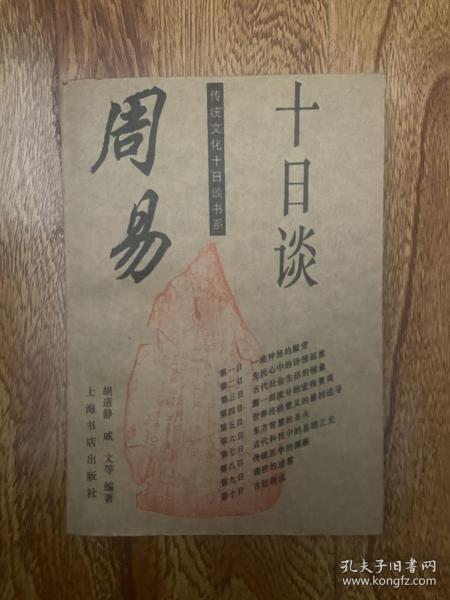 周易
十日谈
传统文化十日谈书系
第一日 一座神秘的殿堂
第二日 先民心中的诗情谣意
第三日 古代社会生活的镜象
第四日 源一流分的宏伟景观
第五日 世界终极意义的最初追寻
第六日 东方智慧的圣火
第七日 近代科技中的易理之光
第八日 传统医学的渊薮
第九日 谶纬的迷雾
第十日 古坛新说
胡道静 戚文等 编著
上海书店出版社
孔夫子旧书网
www.kongfz.com